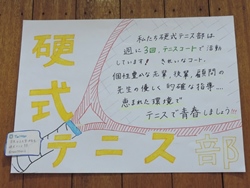 硬式
テニス部
私たち硬式テニス部は
週に3回、テニスコートで活動
しています!きれいなコート、
個性豊かな先輩、後輩、顧問の
先生の優しく的確な指導....
恵まれた環境で
テニスで青春しましょう